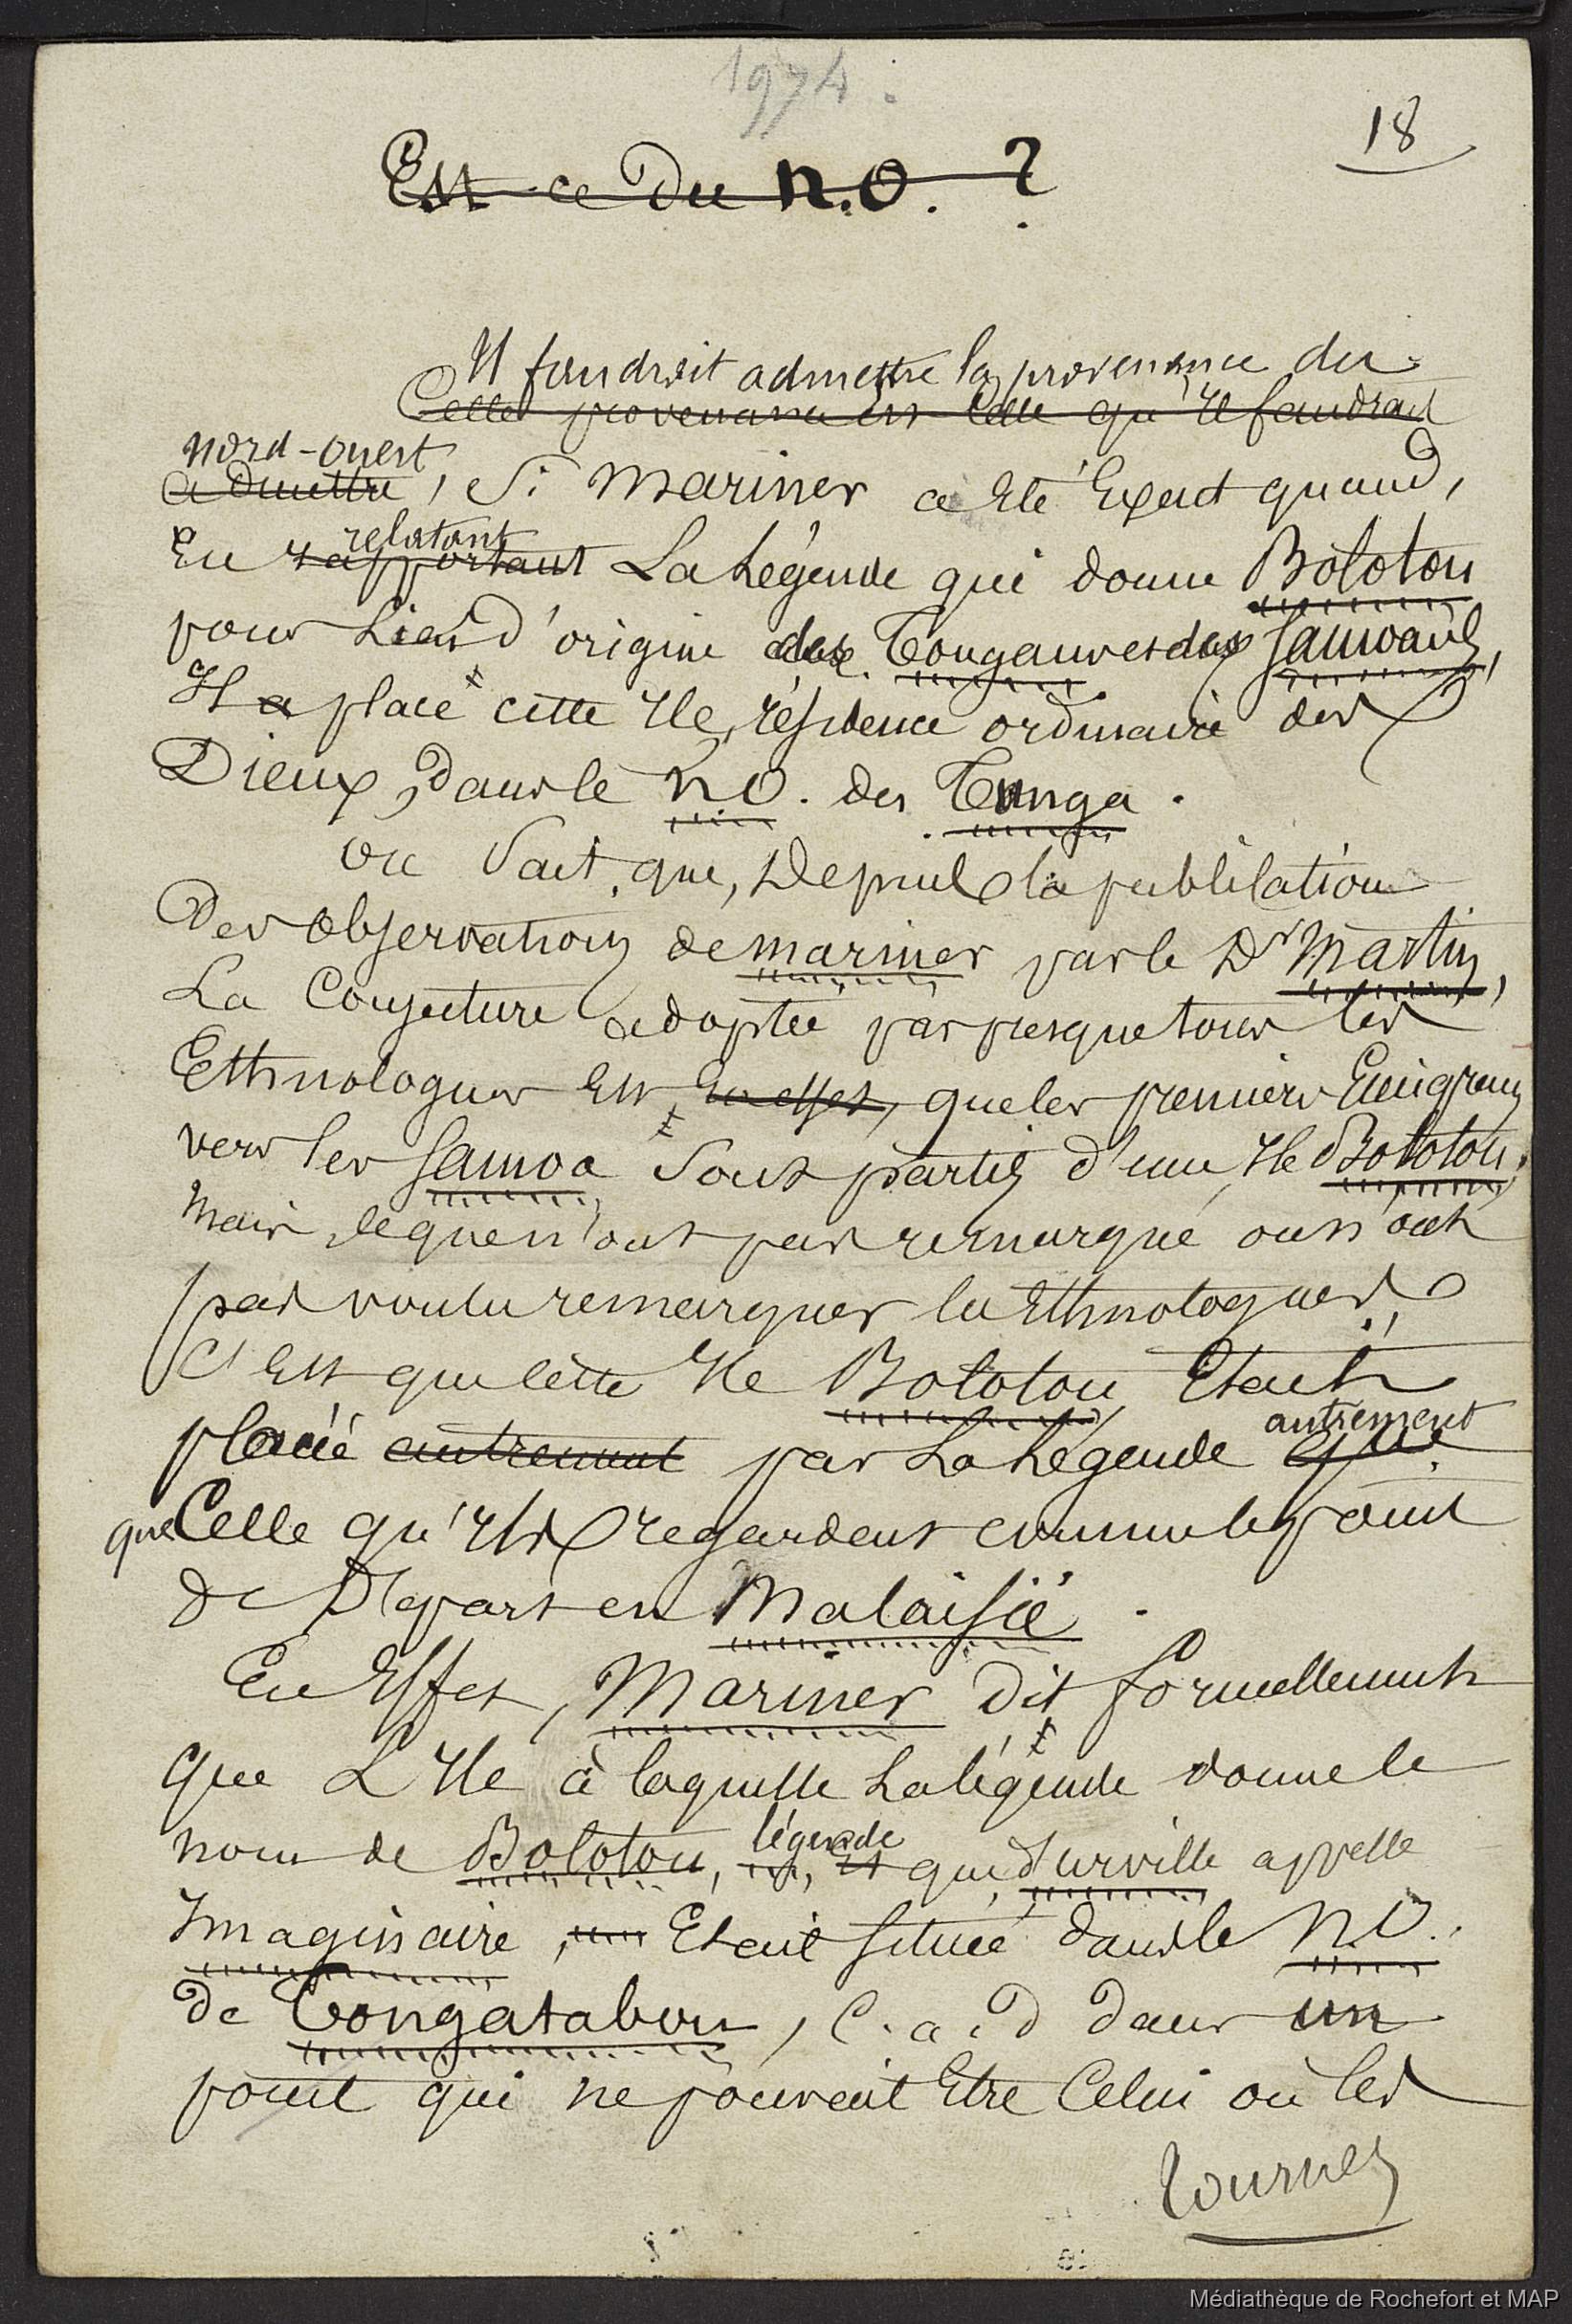 1974.
18
Est-ce du N.O. ?
Il faudrait admettre la provenance du
Cette provenance est celle qu'il faudrait
nord-ouest
admettre, Si Mariner a été Exact quand,
relatant
En rapportant La Légende qui donne Bolotou
pour Lieu d'origine des Tongans et des Samoans,
Il a placé cette Ile, résidence ordinaire des
Dieux, dans le NO. des Tunga.
On Sait, que, Depuis la publication
Des Observations de Mariner par le Dr Martin,
La Conjecture adoptée par presque tous les
Ethnologues Est, En effet, que les premiers Emigrans
vers les Samoa Sont partis d'une Ile Bolotou.
Mais, ce que n'ont pas remarqué ou n'ont
pas voulu remarquer les Ethnologues,
C'Est que cette Ile Bolotou Etait
autrement
placée autrement par La Légende que
que Celle qu'Ils regardent comme le point
de Départ en Malaisie.
En Effet, Mariner dit formellement
que L'Ile à laquelle La légende donne le
légende
nom de Bolotou, et que d'urville appelle
Imaginaire, Etait Située dans le N.O.
de Tongatabou, C.a.d dans un
point qui ne pouvait Etre Celui où les
Tournez
Médiathèque de Rochefort et MAP